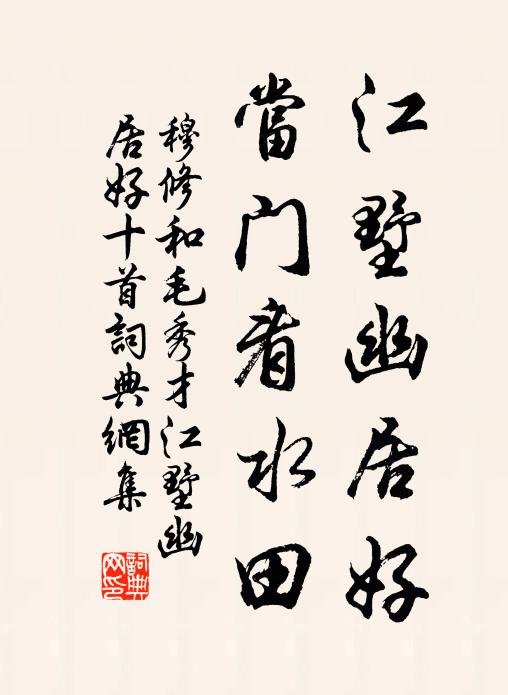 江墅幽居好
當门看水田
穆修和毛秀才江墅幽
居好十首詞典網集
詞典
网印